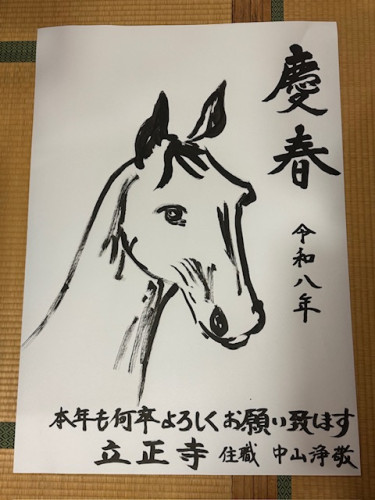 慶春
令和八年
本年も何卒よろしくお願い致します
立正寺 住職 中山浄敬